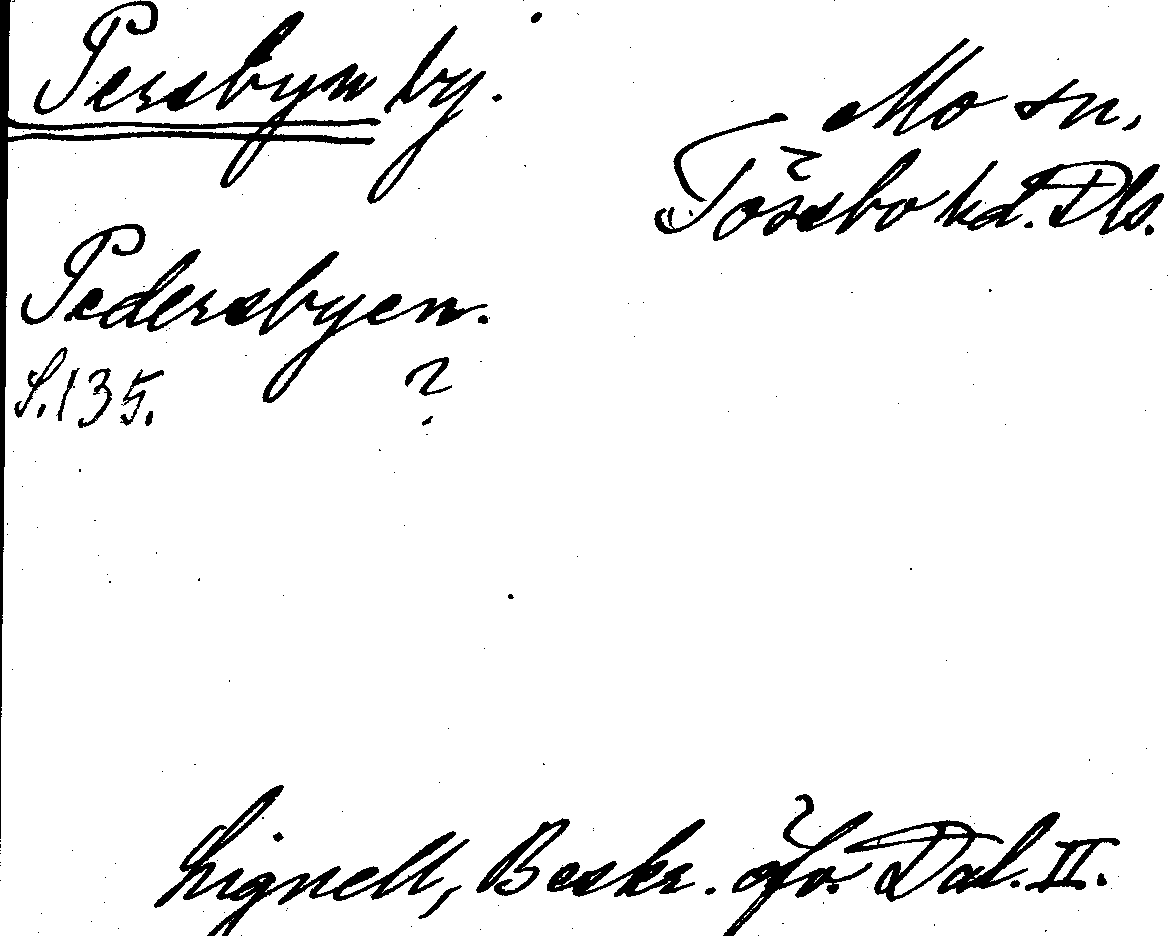 Persbyn by.
Mo sn,
Tössbo hd. Dls.
Pedersbyen.
S. 135. ?
Lignell, Beskr. öfv. Dal. II.